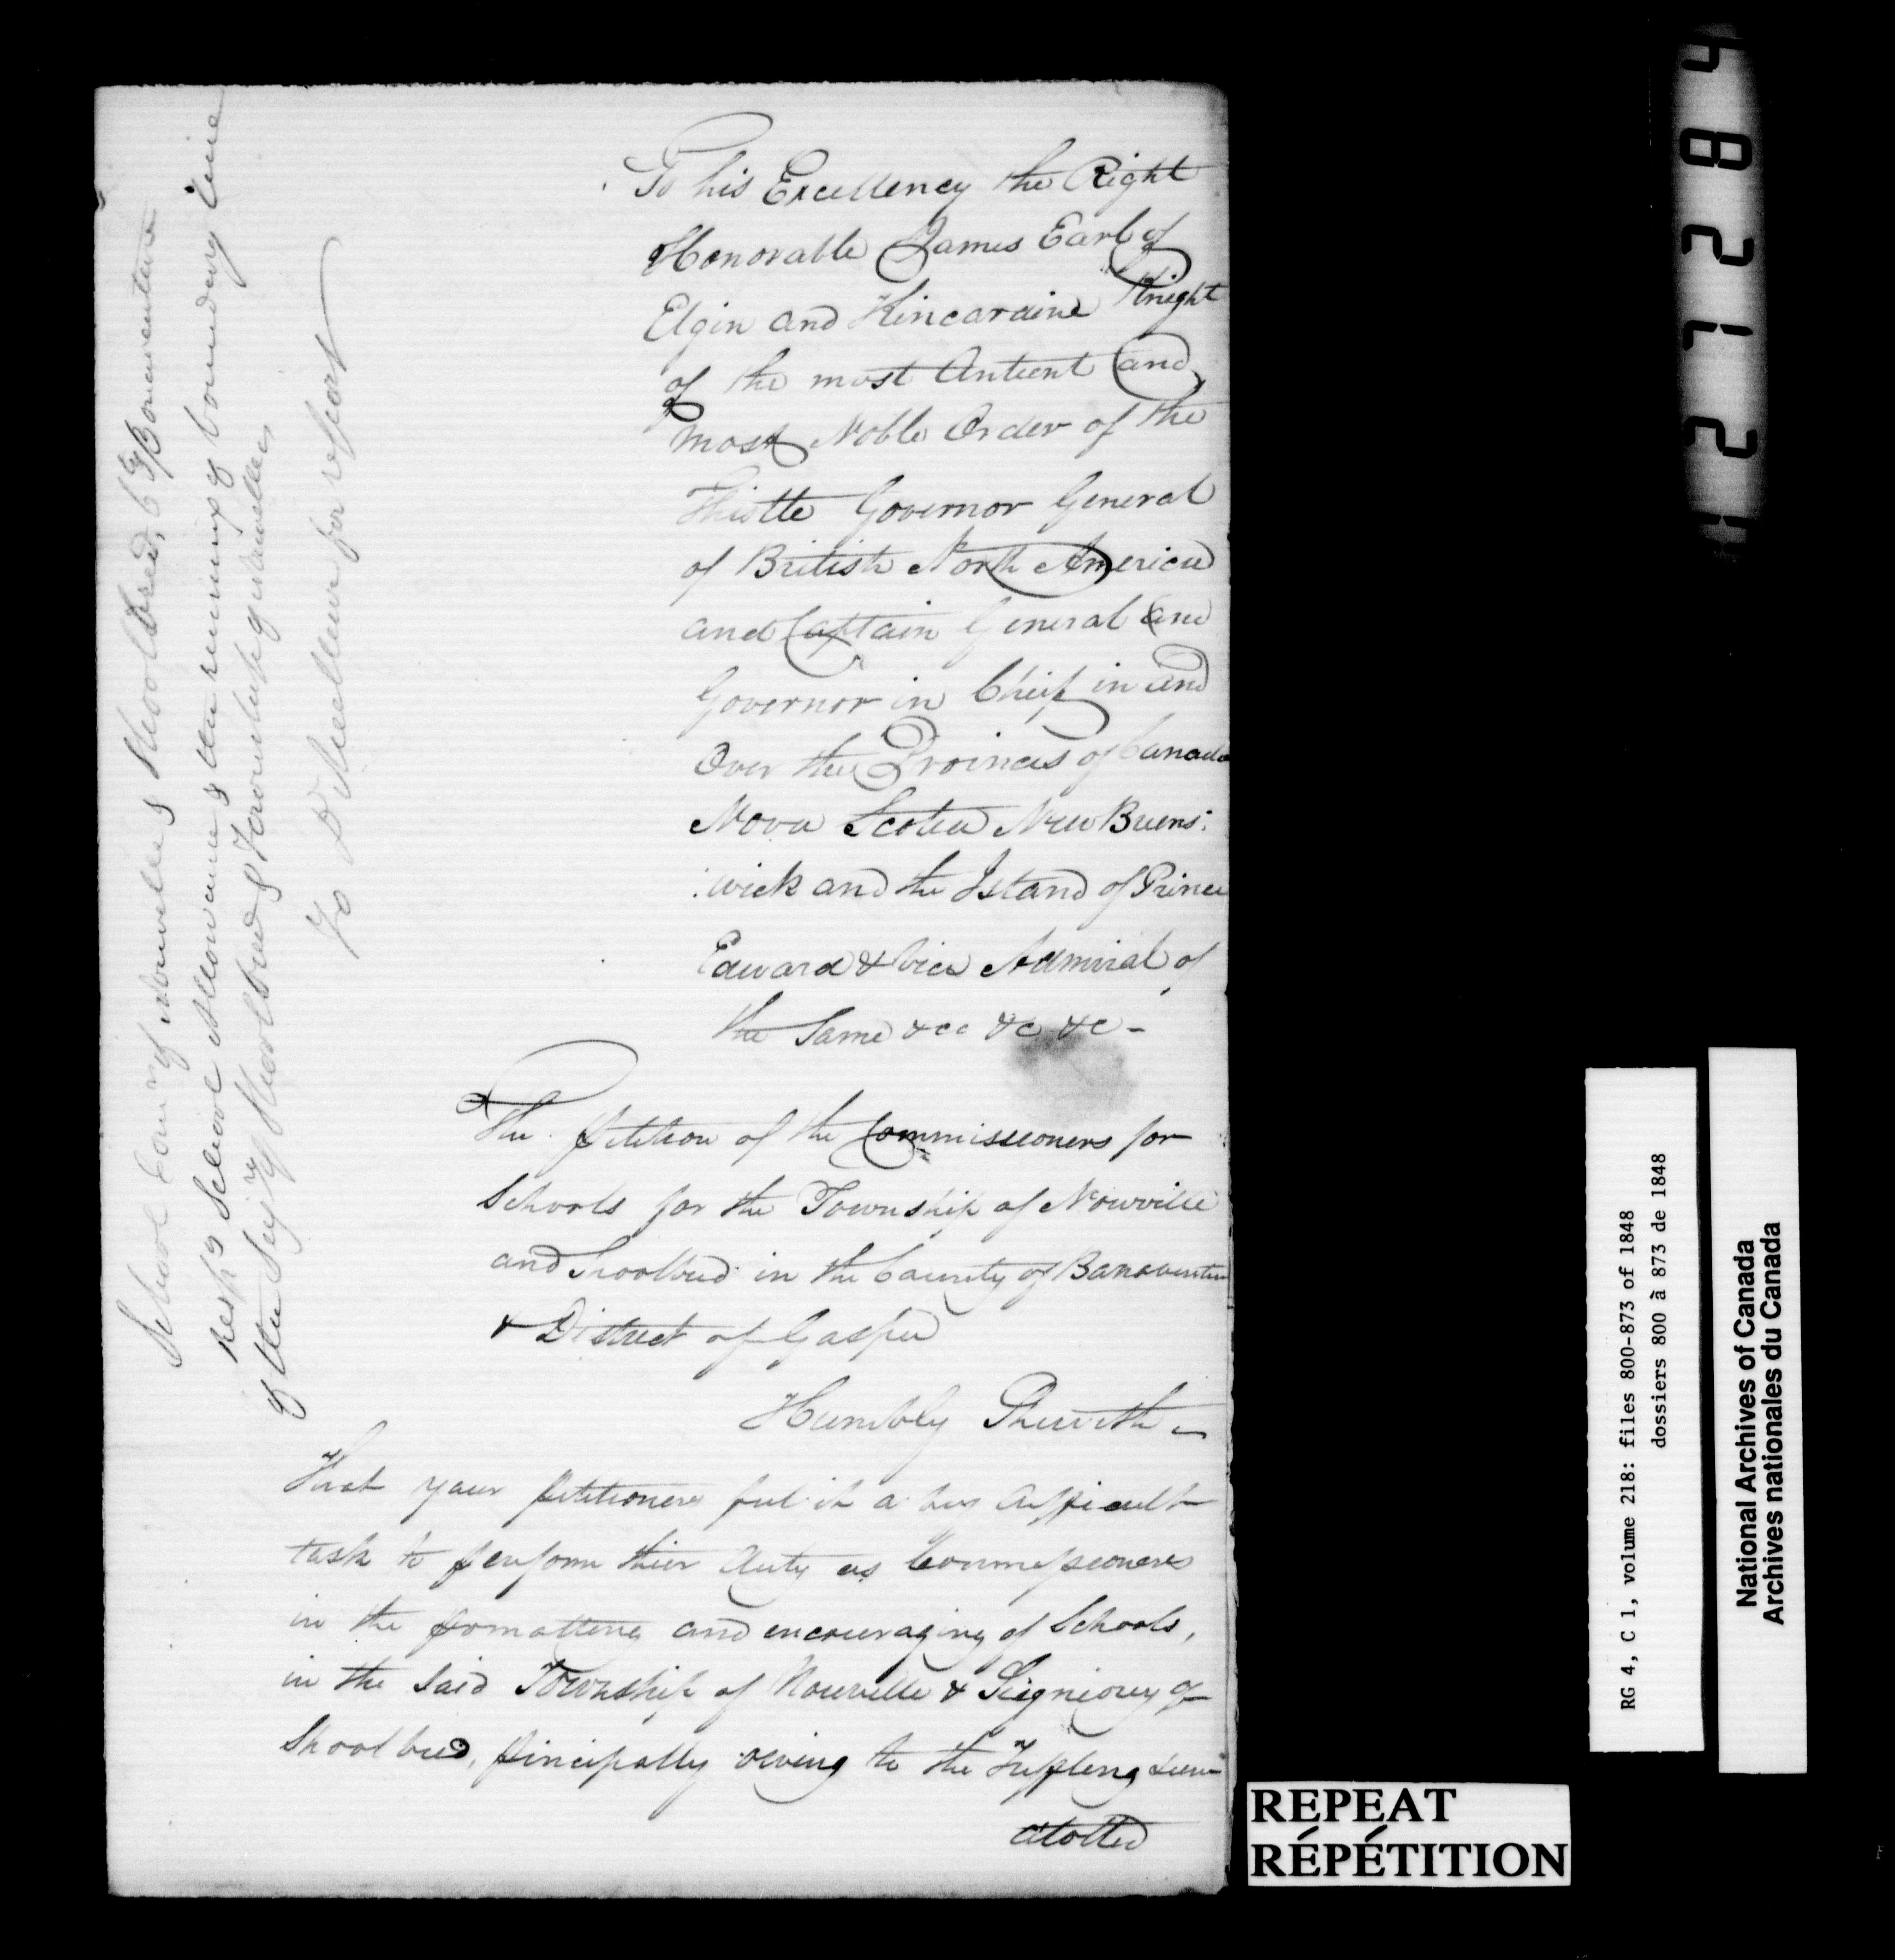 To his Excellency the Right
Honorable James Earl of
Elgin and Kincaraine Knight
of the most Antient and
most Noble Order of the
Thistle Governor General
of British North America
and Captain General and
Governor in Cheif in and
Over the Provinces of Canada
Nova Scotia New Bruns:
:wick and the Island of Prince
Edward & Vice Admiral of
the Same &cc &c &c -
The Petition of the Commissioners for
Schools for the Township of Nouville
and Shoolbred in the County of Bonaventure
& District of Gaspee
Humbly Sheweth -
That your petitioners feel it a very difficult
task to perform thier duty as Commissioners
in the promotting and encouraging of Schools,
in the Said Township of Nouville & Seigniory of
Shoolbred, princepally owing to the Triffling sum
alotted
School Com of Nouville & Shoolbred, Cty Bonaventure
resp'g School Allowance & the running of boundary line
of the Seig'ry of Shoolbred & Township of Nouvelle
To Dr Meilleur for report
2 1 2 8 4
RG 4, C 1, volume 218: files 800-873 of 1848
dossiers 800 à 873 de 1848
National Archives of Canada
Archives nationales du Canada
REPEAT
RÉPÉTITION